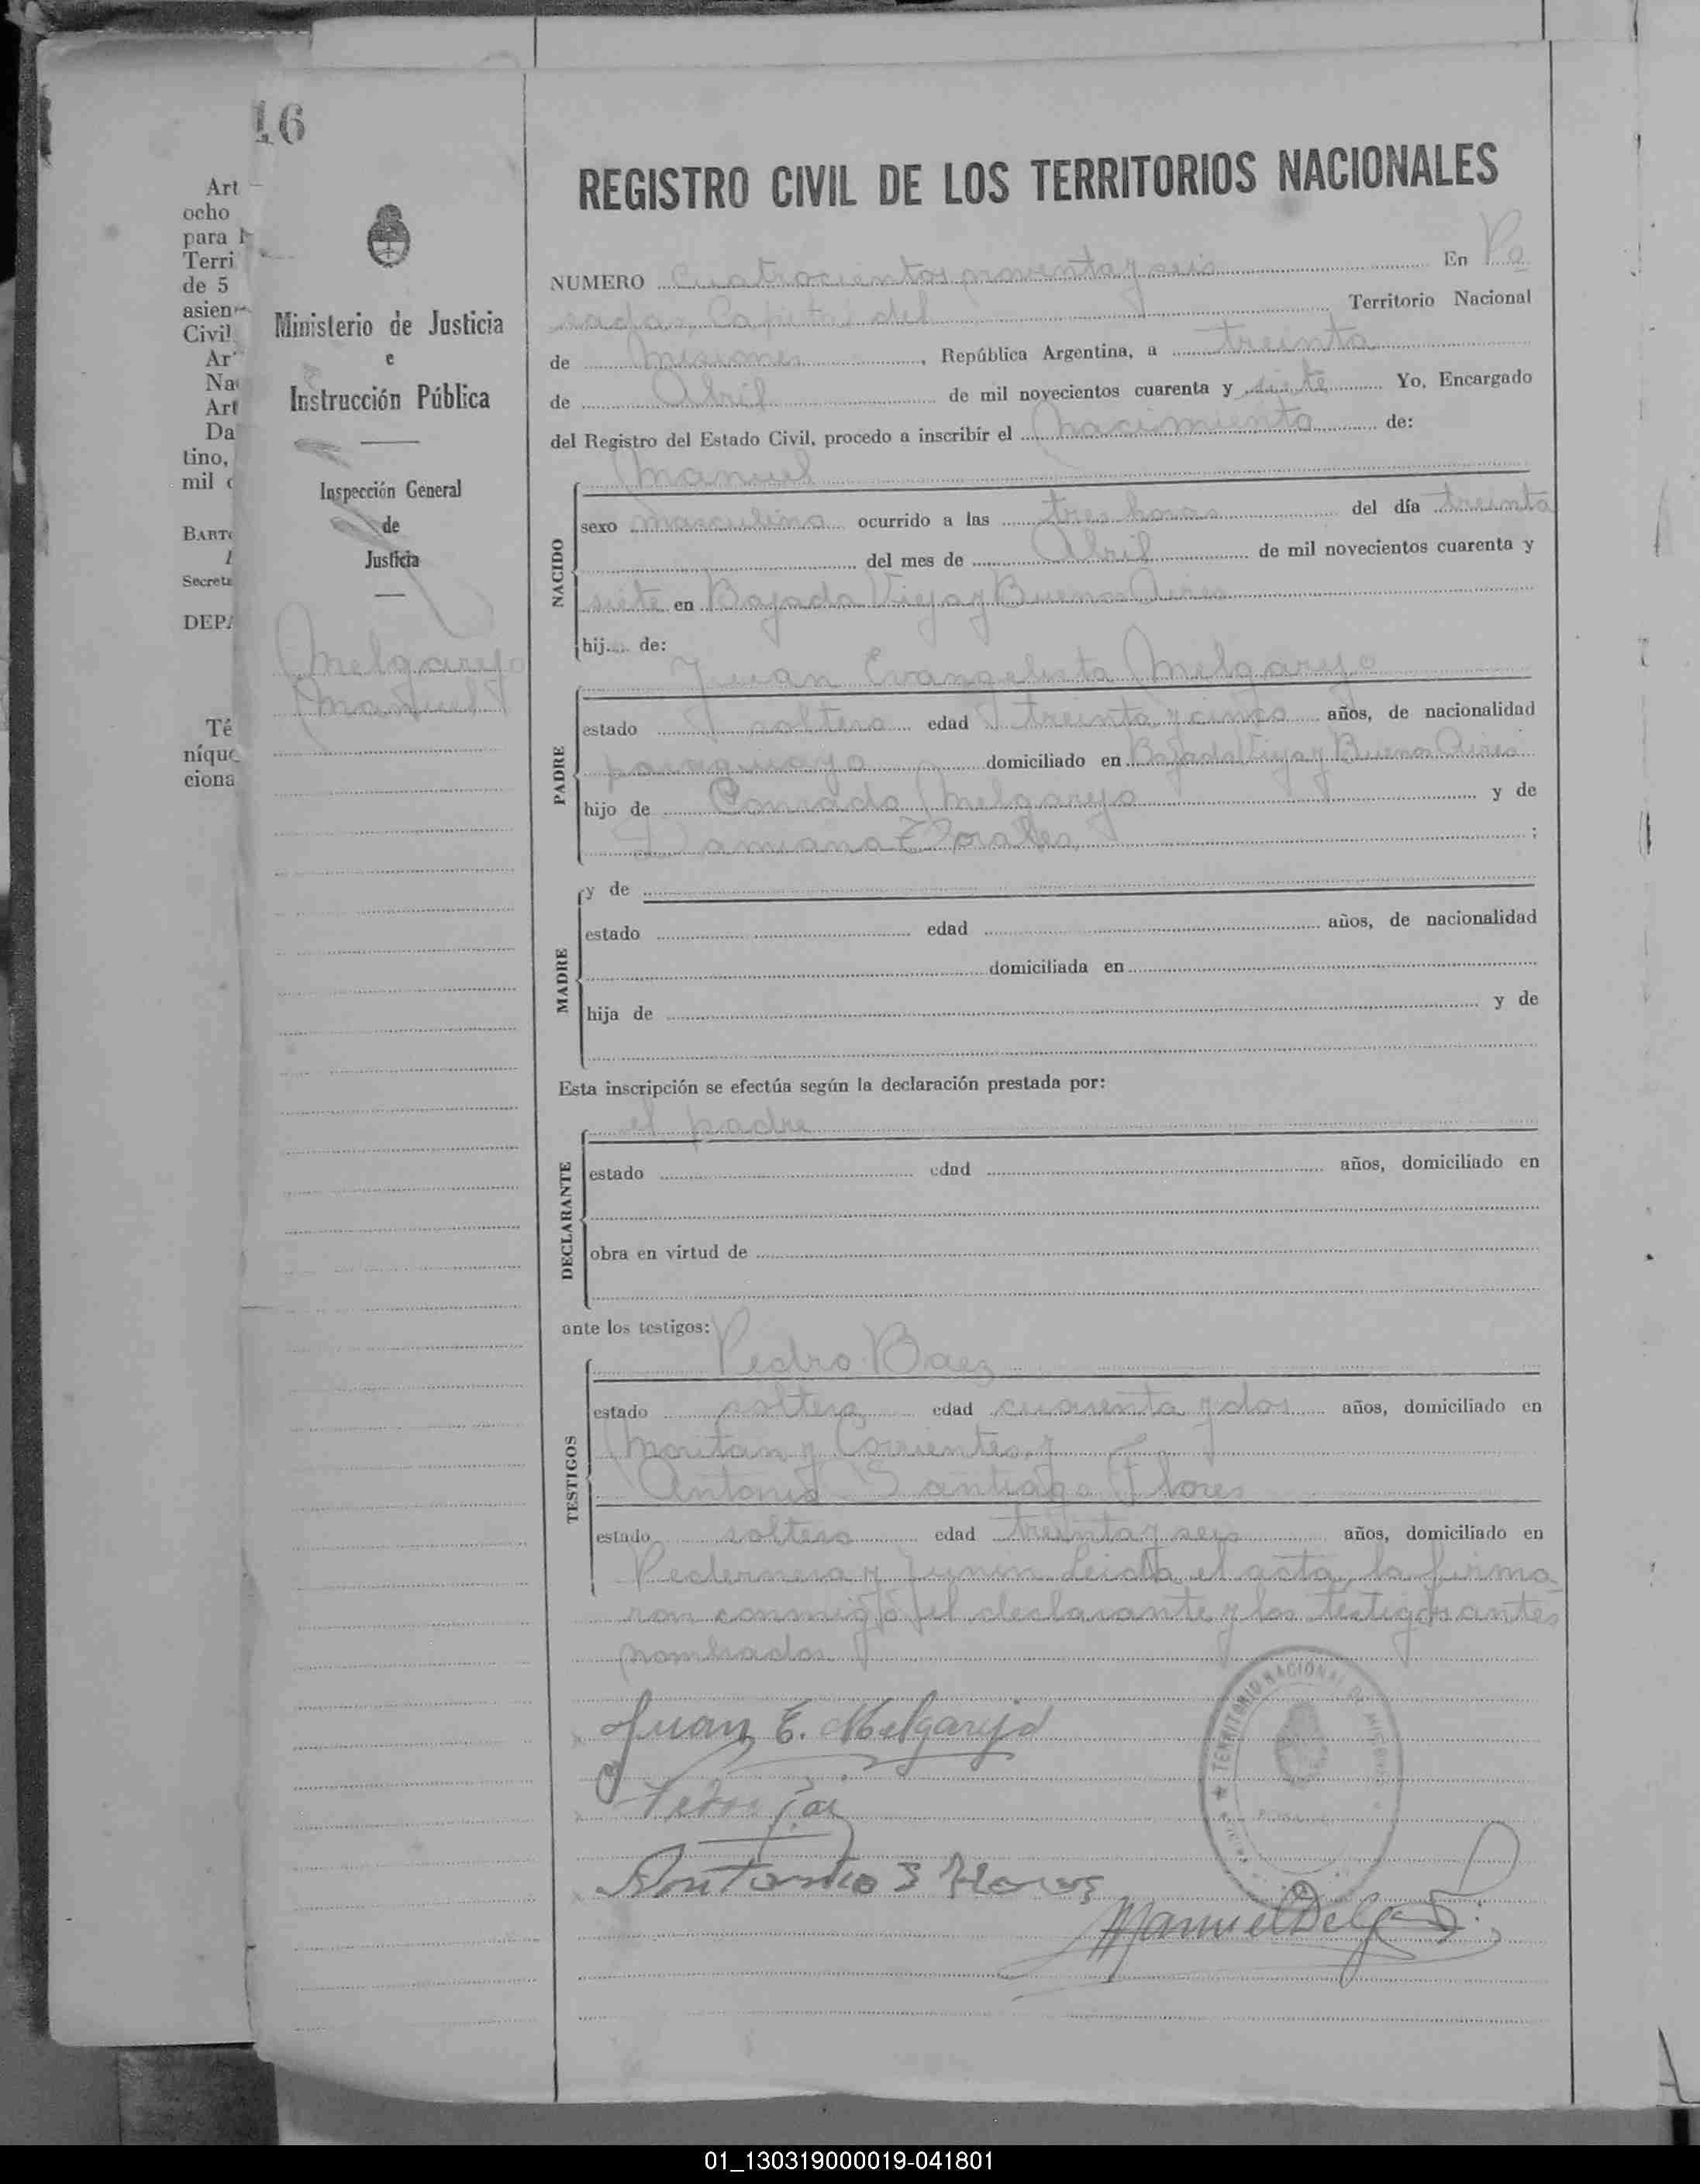 16
Art
ocho
para
Terri
de 5
asien
Civil
Ar
Na
Art
Da
tino,
mil
BART
Secret
DEP
Té
níque
ciona
Ministerio de Justicia
e
Instrucción Pública
Inspección General
de
Justicia
Melgarejo
Manuel
REGISTRO CIVIL DE LOS TERRITORIOS NACIONALES
NUMERO Cuatrocientos noventa y seis En Po
sadas, Capital del Territorio Nacional
de Misiones, República Argentina, a treinta
de Abril de mil novecientos cuarenta y siete Yo, Encargado
del Registro del Estado Civil, procedo a inscribir el nacimiento de:
Manuel
NACIDO
sexo masculino ocurrido a las tres horas del día treinta
del mes de Abril de mil novecientos cuarenta y
siete en Bajada Vieja y Buenos Aires
hij.... de:
Juan Evangelista Melgarejo
PADRE
estado soltero edad treinta y cinco años, de nacionalidad
paraguayo domiciliado en Bajada Vieja y Buenos Aires
hijo de Conrado Melgarejo y de
Damiana ;
y de
MADRE
estado edad años, de nacionalidad
domiciliada en
hija de y de
Esta inscripción se efectúa según la declaración prestada por:
el padre
DECLARANTE
estado edad años, domiciliado en
obra en virtud de
ante los testigos:
Pedro Baez
TESTIGOS
estado soltero edad cuarenta y dos años, domiciliado en
y Corrientes y
Antonio Santiago Flores
estado soltero edad treinta y seis años, domiciliado en
Pedernera y Junin. Leida el acta, la firma
ron conmigo el declarante y los testigos antes
nombrados
Juan E. Melgarejo
Antonio S Flores
TERRITORIO NACIONAL DE MISIONES
Manuel Delg
01_130319000019-041801